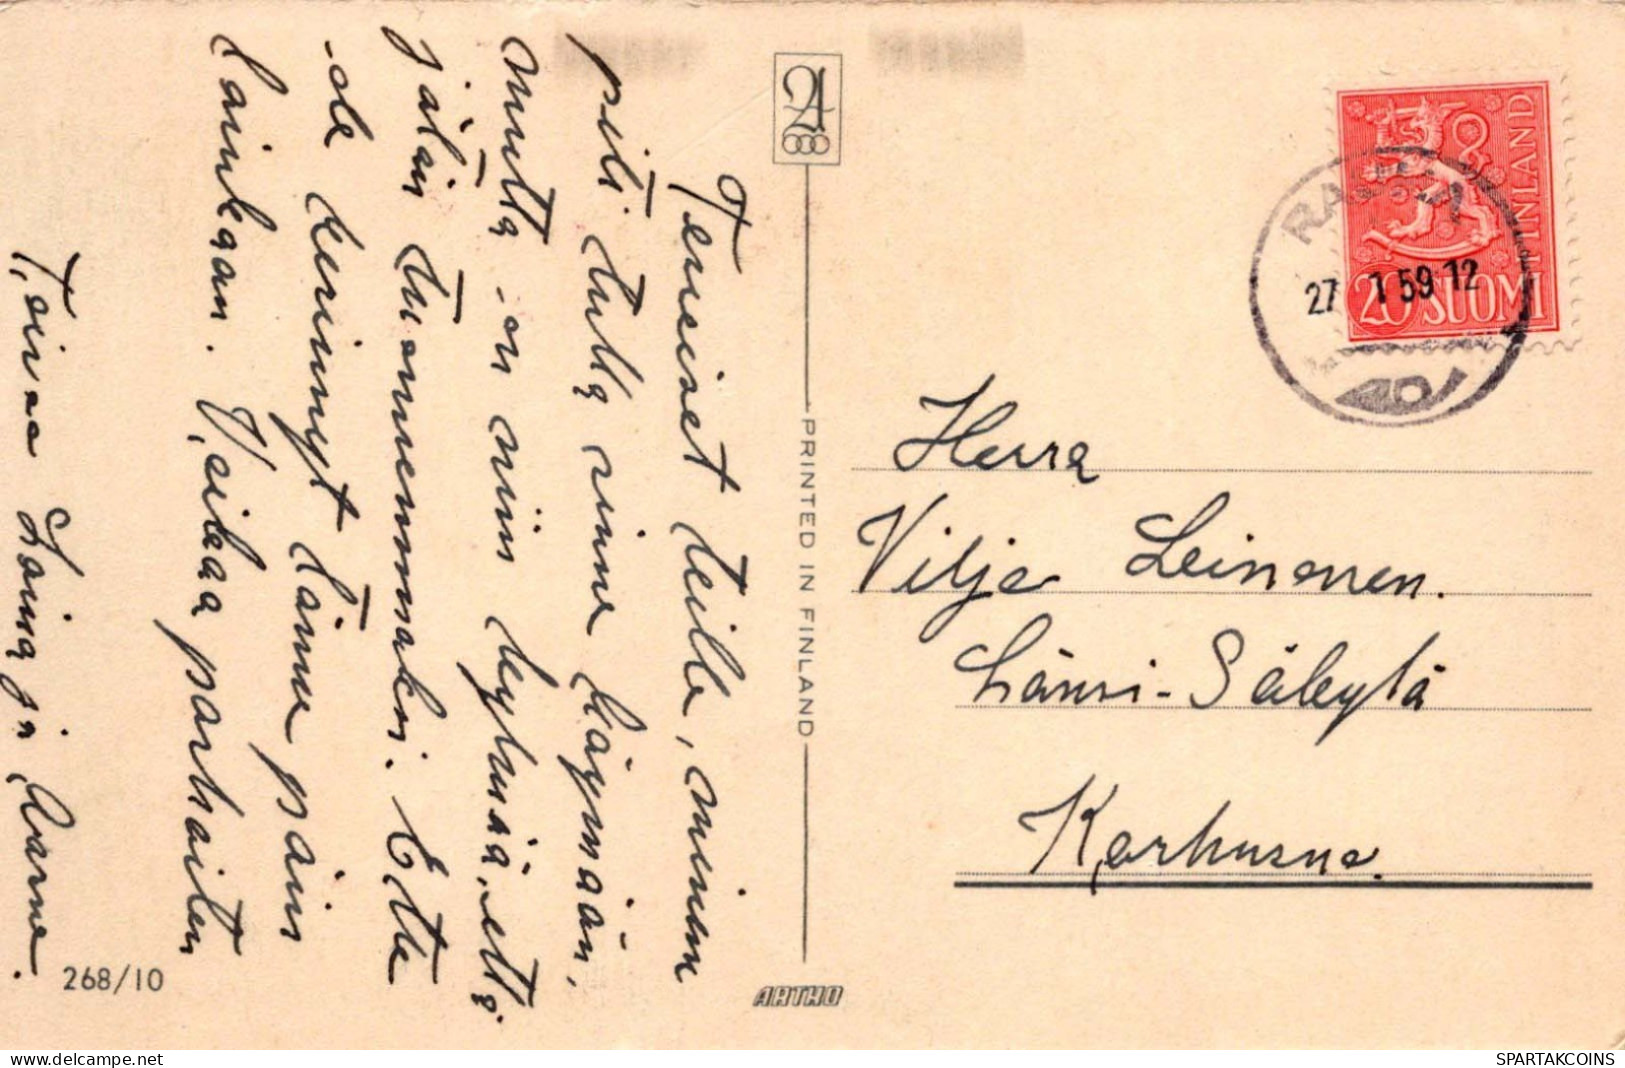 Terveiset teille, minun
piti tulla sinne käymään,
mutta on niin kylmää, että
jäläin tuonnemmaksi. Ette
ole kerinnyt tänne päin
lainkaan. Voikaa parhaiten
Toivoo Laina ja Aarne.
268/10
PRINTED IN FINLAND
ARTHO
RAUMA
27 1 59 12
20 SUOMI
FINLAND
Herra
Viljo Leinonen.
Länsi-Säkylä
Karhusuo.
delcampe.net
SPARTAKCOINS